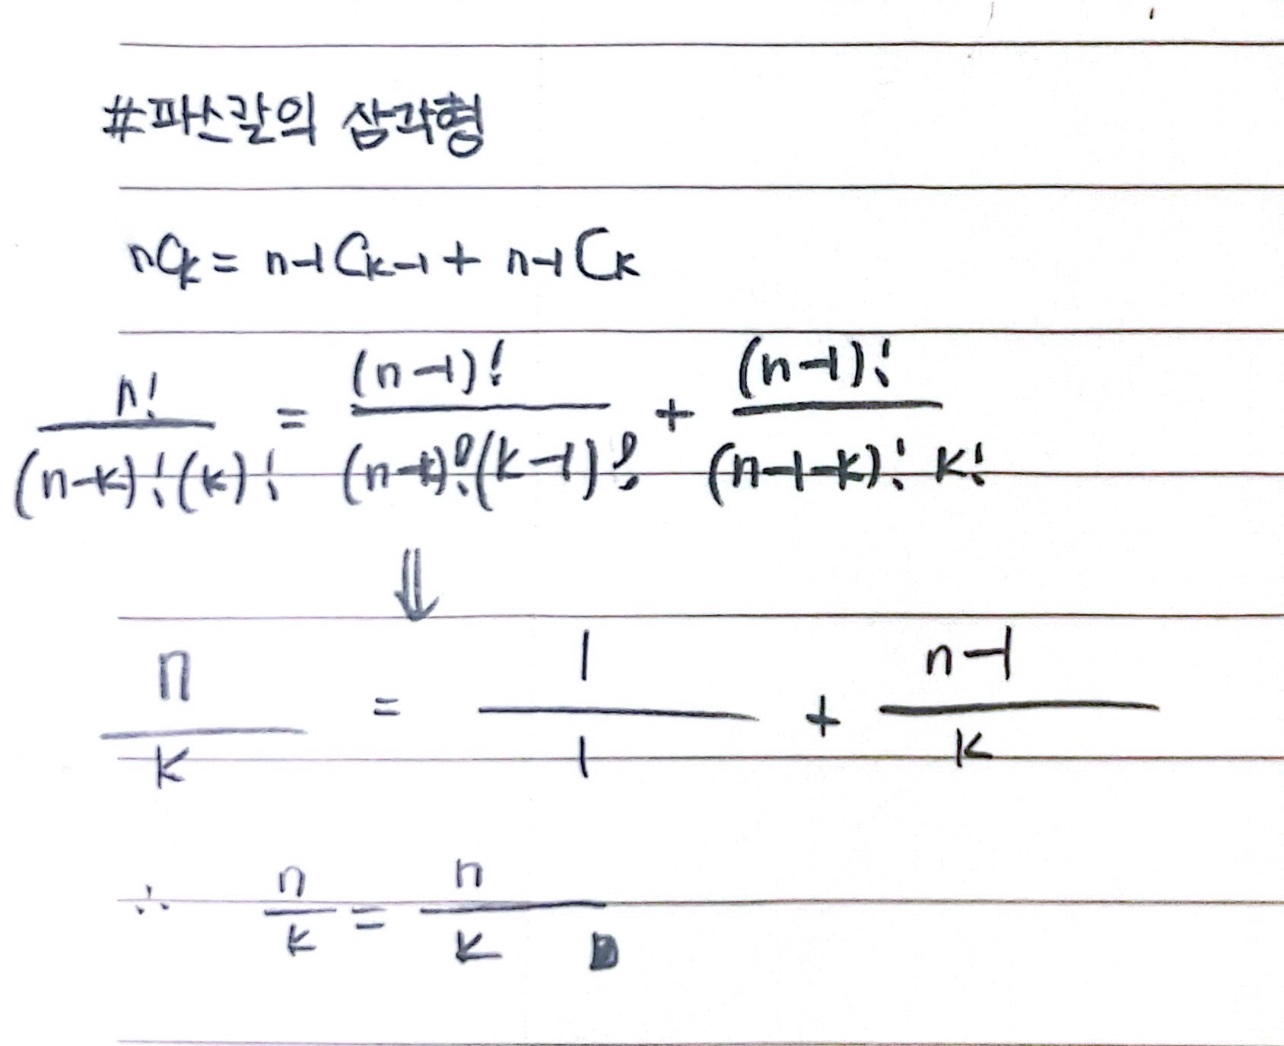 #파스칼의 삼각형
nCk = n-1Ck-1 + n-1Ck
n!/((n-k)!(k)!) = (n-1)!/((n-k)!(k-1)!) + (n-1)!/((n-1-k)! k!)
⇓
n/k = 1/1 + (n-1)/k
∴ n/k = n/k